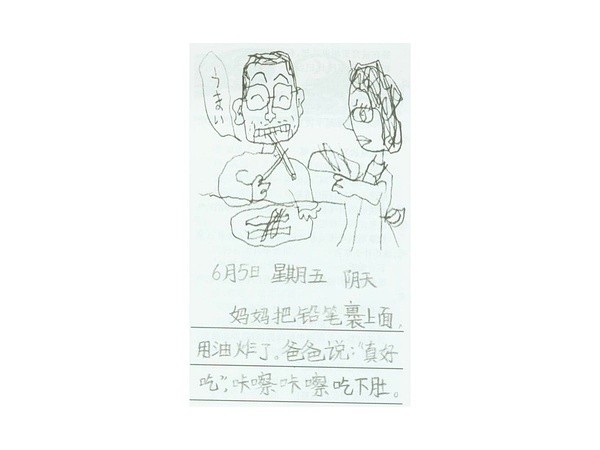 うまい
6月5日 星期五 阴天
妈妈把铅笔裹上面,
用油炸了。爸爸说:“真好
吃”,咔嚓咔嚓吃下肚。